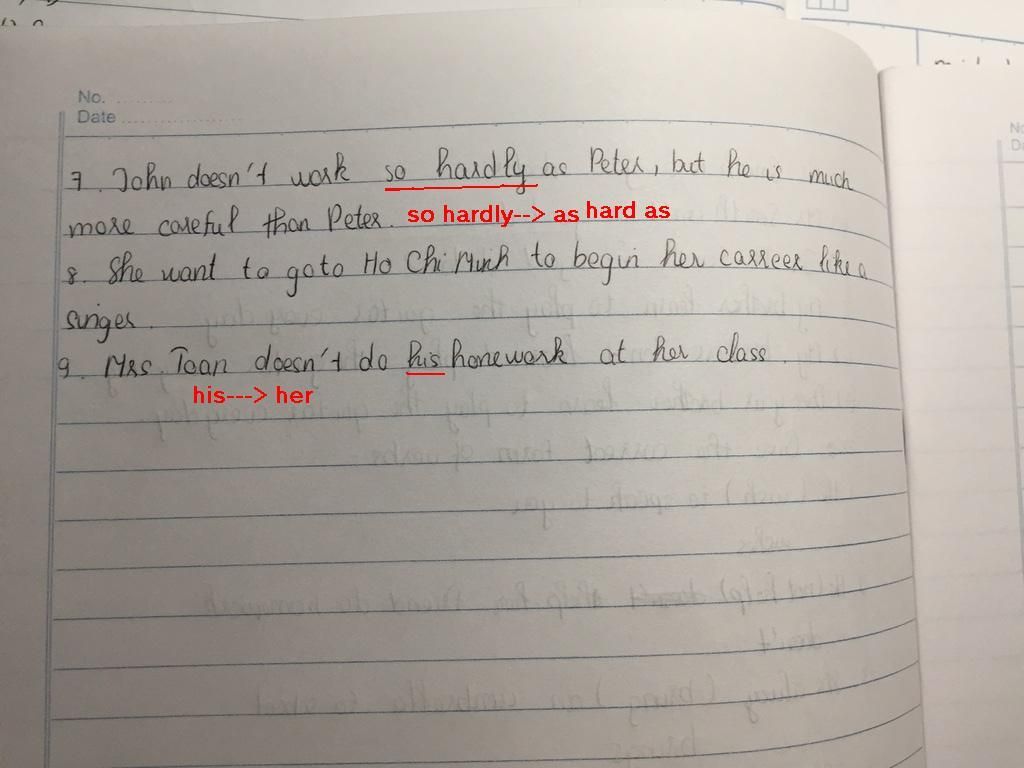 No.
Date
7. John doesn't work so hardly as Peter, but he is much
more careful than Peter. so hardly--> as hard as
8. She want to go to Ho Chi Minh to begin her carreer like a
singer.
9. Mrs. Toan doesn't do his homework at her class.
his---> her